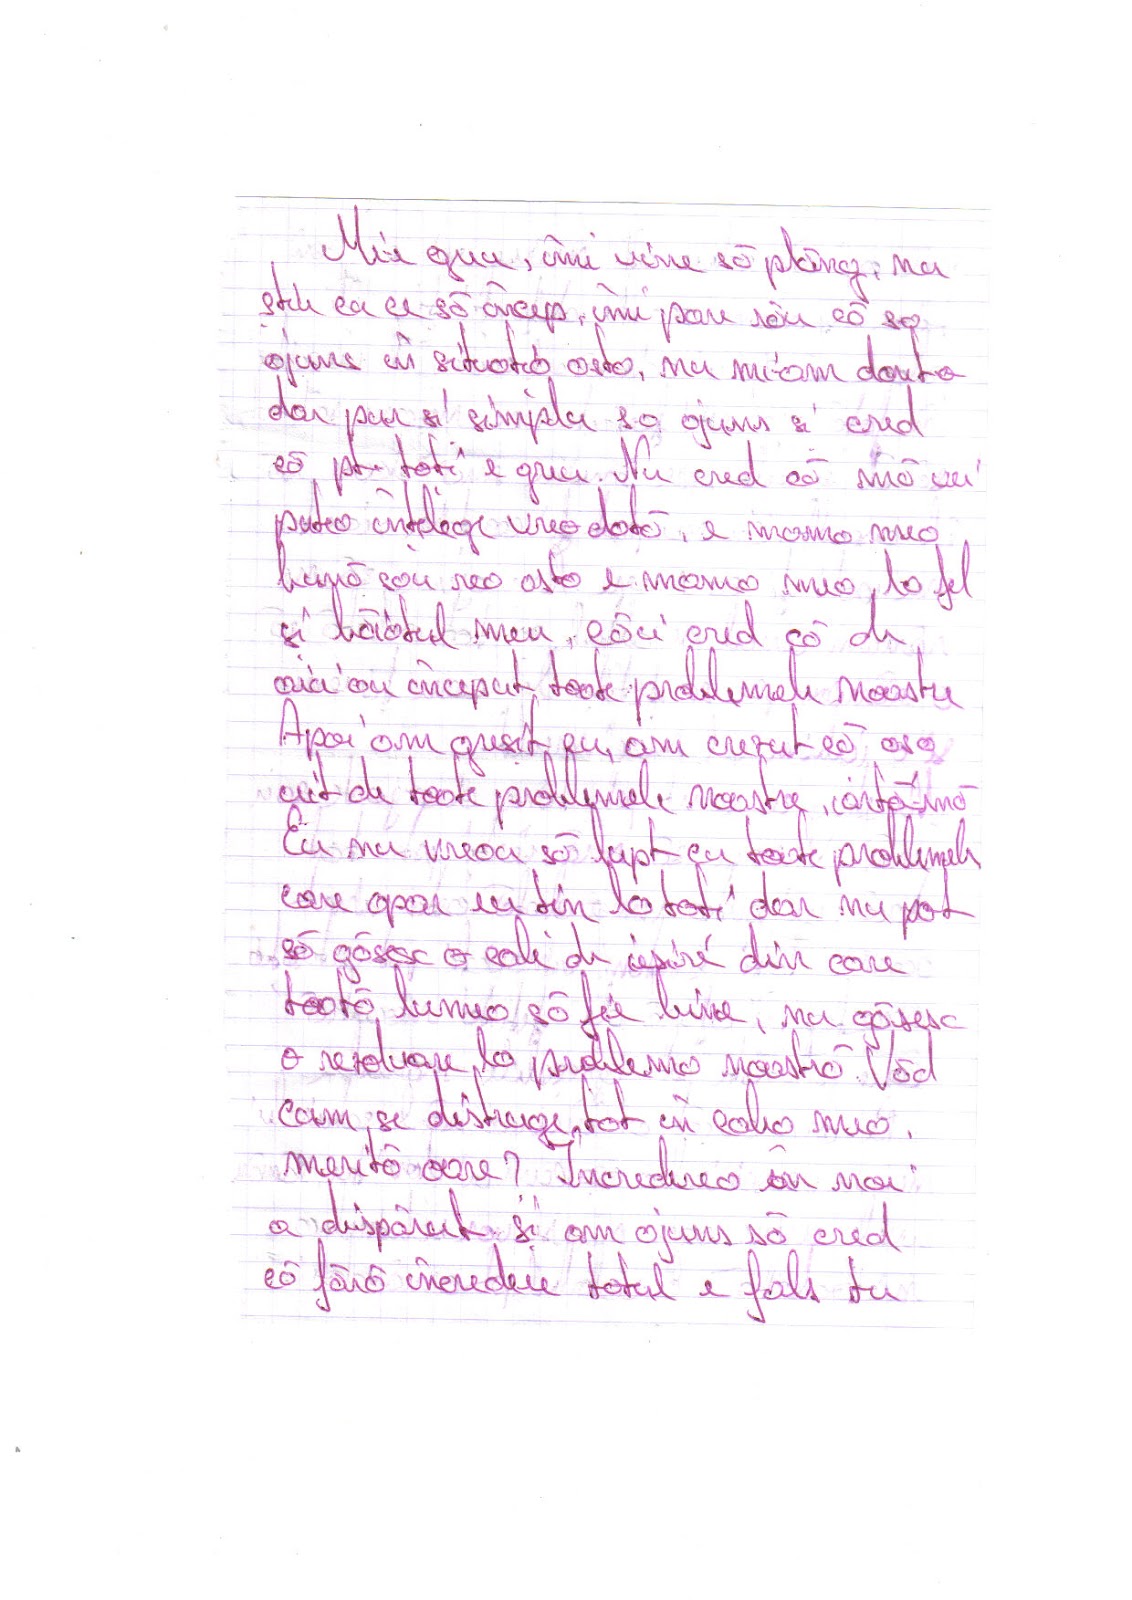 Mi-e greu, îmi vine să plâng, nu
știu cu ce să încep, îmi pare rău că sa
ajuns în situația asta, nu mi-am dorit-o
dar pur si simplu sa ajuns si cred
că pt. toti e greu. Nu cred că mă vei
putea întelege vreodată, e mama mea
bună sau rea asta e mama mea, la fel
și băiatul meu, căci cred că de
aici au început toate problemele noastre
Apoi am gresit eu, am crezut că asa
uit de toate problemele noastre, iartă-mă
Eu nu vreau să lupt cu toate problemele
care apar eu tin la toti dar nu pot
să găsesc o cale de ieșire din care
toată lumea să fie bine, nu găsesc
o rezolvare la problema noastră. Văd
cum se distruge tot în calea mea,
merită oare? Încrederea în noi
a dispărut și am ajuns să cred
că fără încredere totul e fals tu